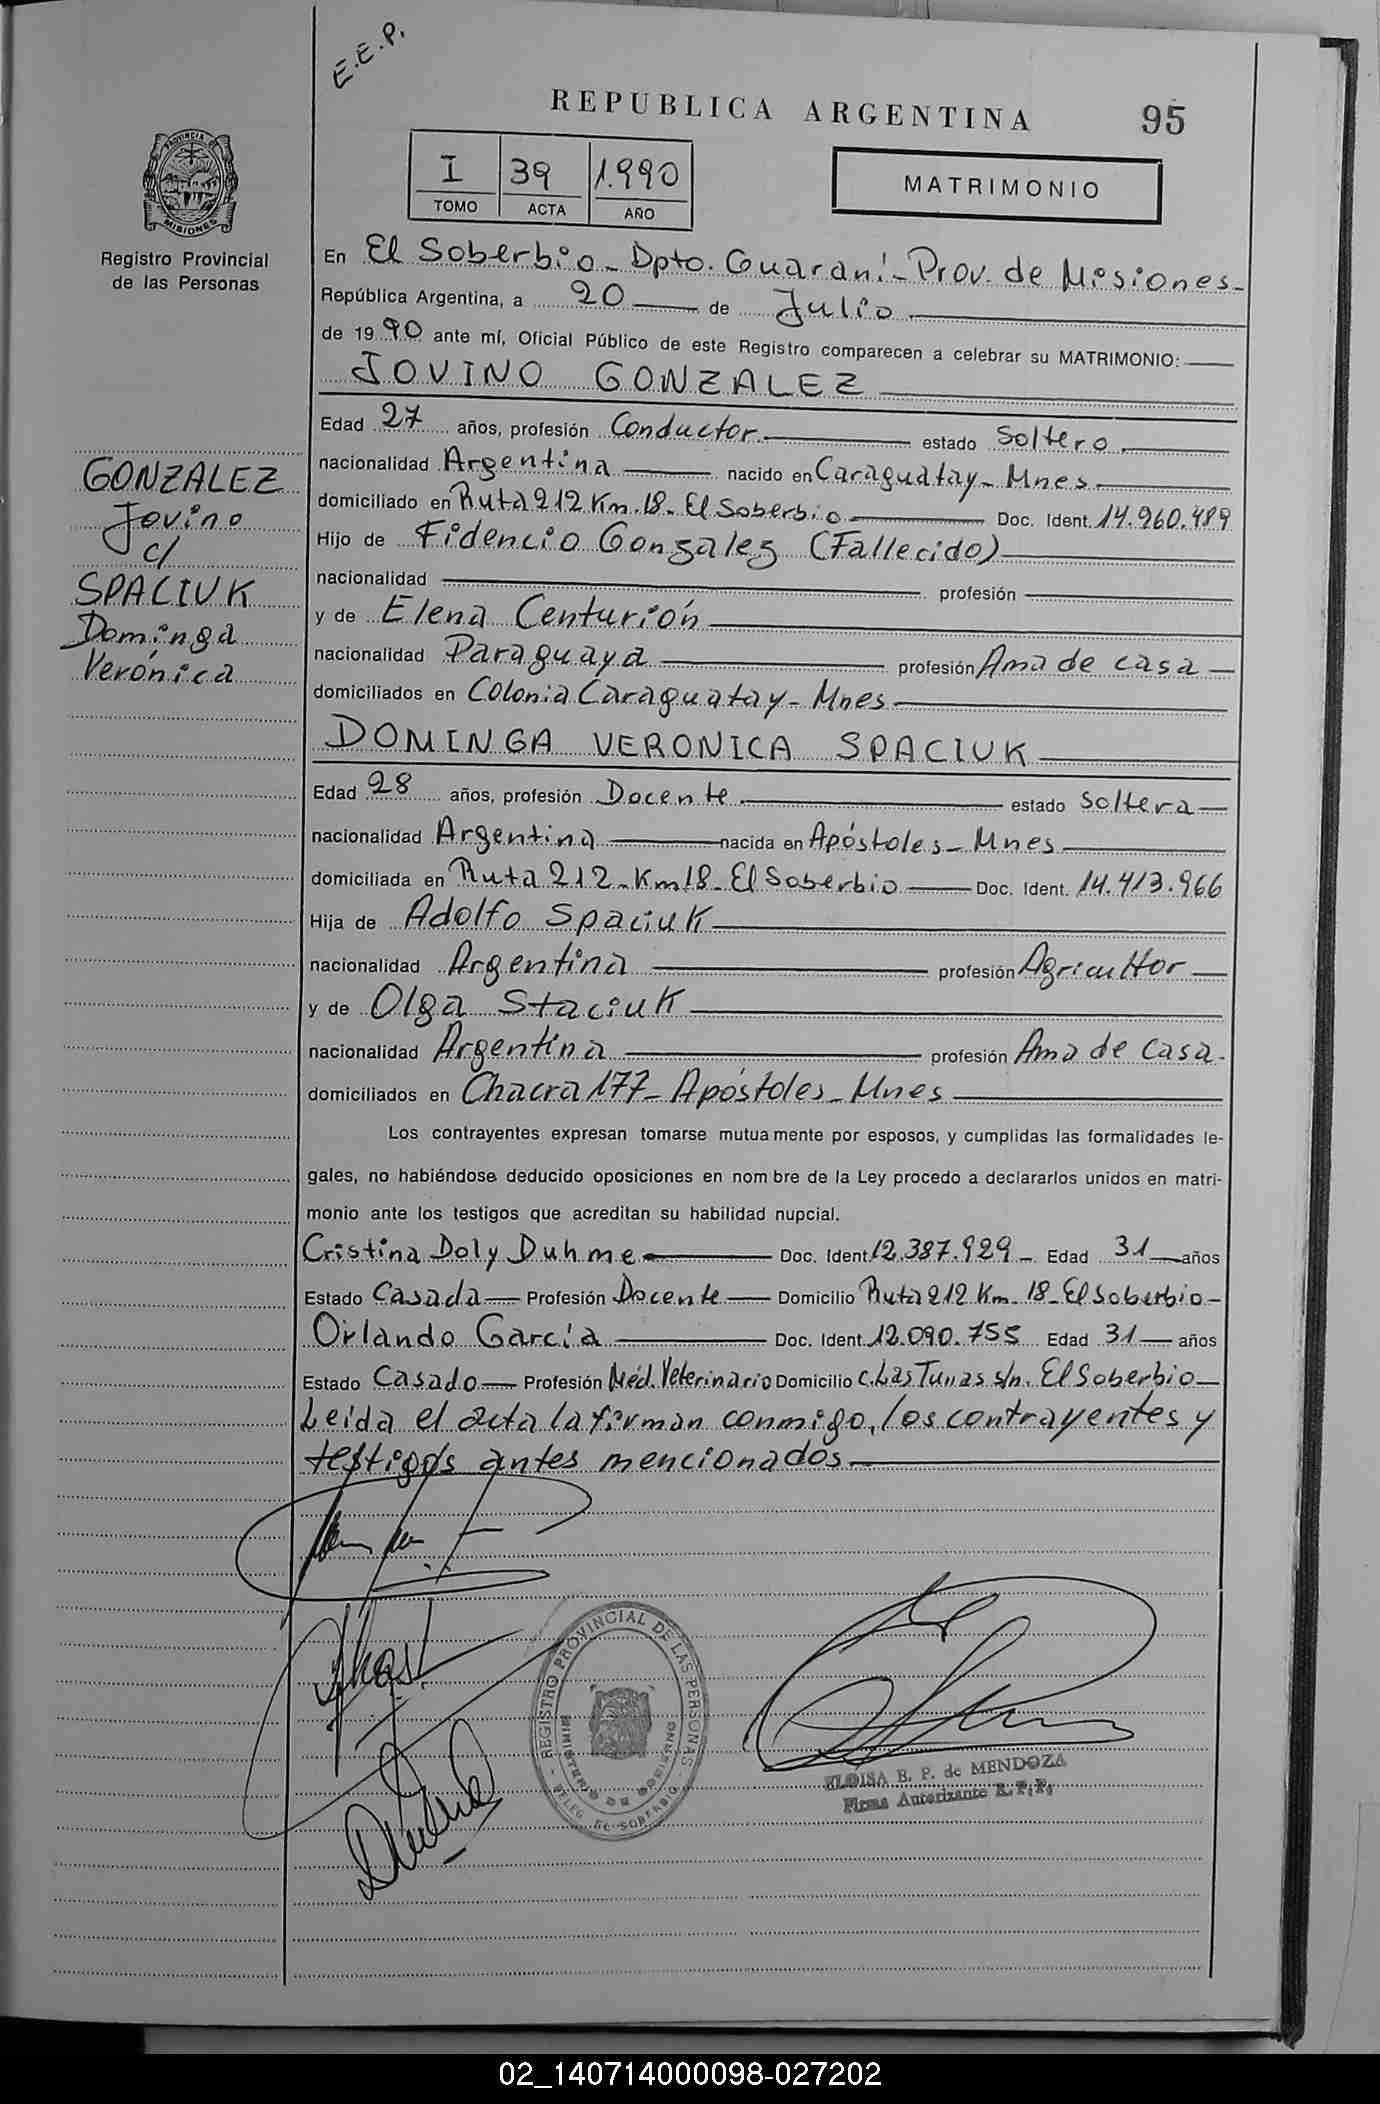 E.E.P.
REPUBLICA ARGENTINA 95
PROVINCIA DE MISIONES
Registro Provincial
de las Personas
I 39 1.990
TOMO ACTA AÑO
MATRIMONIO
En El Soberbio - Dpto. Guaraní - Prov. de Misiones -
República Argentina, a 20 de Julio
de 1990 ante mí, Oficial Público de este Registro comparecen a celebrar su MATRIMONIO:
JOVINO GONZALEZ
Edad 27 años, profesión Conductor estado Soltero
nacionalidad Argentina nacido en Caraguatay - Mnes
domiciliado en Ruta 212 Km. 18 - El Soberbio Doc. Ident. 14.960.489
Hijo de Fidencio Gonzalez (Fallecido)
nacionalidad profesión
y de Elena Centurión
nacionalidad Paraguaya profesión Ama de casa
domiciliados en Colonia Caraguatay - Mnes
GONZALEZ
Jovino
c/
SPACIUK
Dominga
Verónica
DOMINGA VERONICA SPACIUK
Edad 28 años, profesión Docente estado Soltera
nacionalidad Argentina nacida en Apóstoles - Mnes
domiciliada en Ruta 212 - Km 18 - El Soberbio Doc. Ident. 14.413.966
Hija de Adolfo Spaciuk
nacionalidad Argentina profesión Agricultor
y de Olga Staciuk
nacionalidad Argentina profesión Ama de Casa
domiciliados en Chacra 177 - Apóstoles - Mnes
Los contrayentes expresan tomarse mutuamente por esposos, y cumplidas las formalidades le-
gales, no habiéndose deducido oposiciones en nombre de la Ley procedo a declararlos unidos en matri-
monio ante los testigos que acreditan su habilidad nupcial.
Cristina Doly Duhme Doc. Ident. 12.387.929 - Edad 31 años
Estado Casada Profesión Docente Domicilio Ruta 212 Km. 18 - El Soberbio -
Orlando García Doc. Ident. 12.090.755 Edad 31 años
Estado Casado Profesión Méd. Veterinario Domicilio C. Las Tunas s/n. El Soberbio
Leida el acta la firman conmigo, los contrayentes y
testigos antes mencionados
REGISTRO PROVINCIAL DE LAS PERSONAS
MINISTERIO DE GOBIERNO
DELEG. EL SOBERBIO
ELOISA B. P. de MENDOZA
Firma Autorizante R. P. P.
02_140714000098-027202